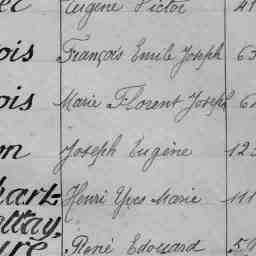 Eugène Victor 41
ois François Emile Joseph 63
ois Marie Florent Joseph 6
on Joseph Eugène 123
hart- Henri Yves Marie 111
René Edouard 5